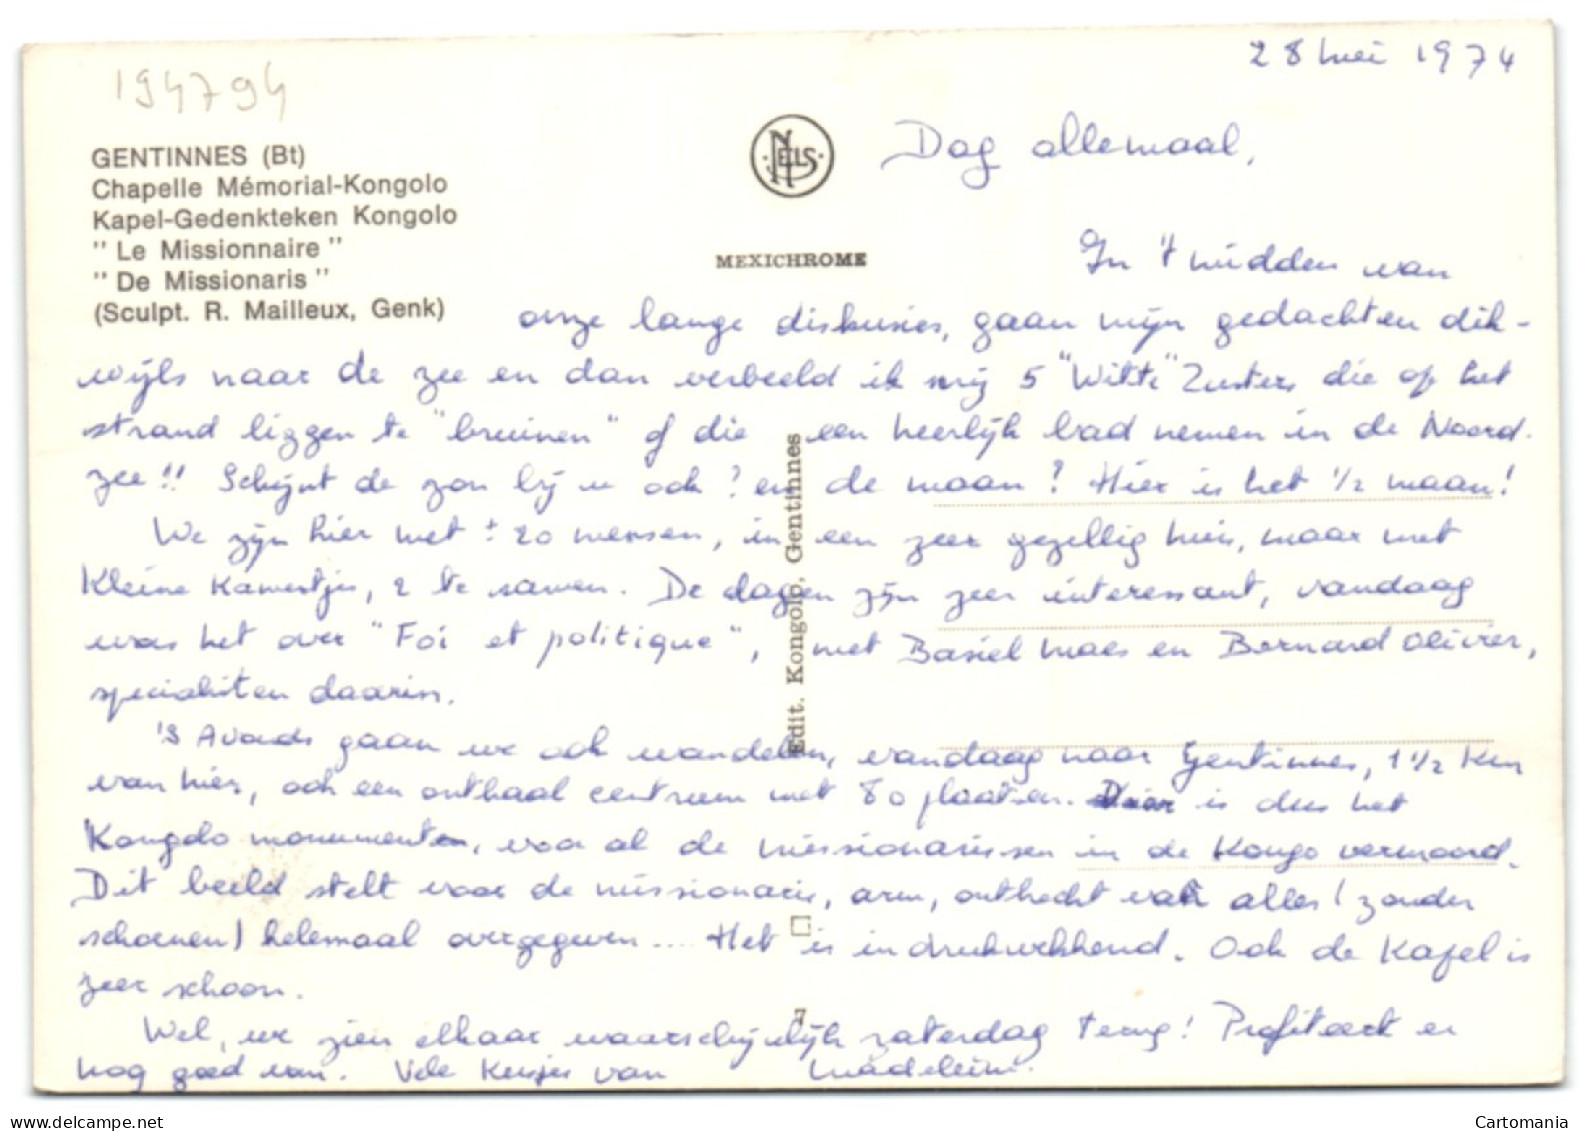 28 mei 1974
194794
GENTINNES (Bt)
Chapelle Mémorial-Kongolo
Kapel-Gedenkteken Kongolo
" Le Missionnaire "
" De Missionaris "
(Sculpt. R. Mailleux, Genk)
NELS
MEXICHROME
Edit. Kongolo, Gentinnes
7
Dag allemaal,
In 't midden van
onze lange diskusies, gaan mijn gedachten dik-
wijls naar de zee en dan verbeeld ik mij 5 "Witte" Zusters die op het
strand liggen te "bruinen" of die een heerlijk bad nemen in de Noord.
zee!! Schijnt de zon bij u ook? en de maan? Hier is het 1/2 maan!
We zijn hier met ± 20 mensen, in een zeer gezellig huis, maar met
kleine kamertjes, 2 te samen. De dagen zijn zeer interessant, vandaag
was het over "Foi et politique", met Basiel Maes en Bernard Olivier,
specialisten daarin.
's Avonds gaan we ook wandelen, vandaag naar Gentinnes, 1 1/2 Km
van hier, ook een onthaal centrum met 80 plaatsen. Daar is dus het
Kongolo monument, voor al de missionarissen in de Kongo vermoord.
Dit beeld stelt voor de missionaris, arm, onthecht van alles (zonder
schoenen) helemaal overgegeven .... Het is indrukwekkend. Ook de Kapel is
zeer schoon.
Wel, we zien elkaar waarschijnlijk zaterdag terug! Profiteert er
nog goed van. Vele Kusjes van Madeleine.
www.delcampe.net
Cartomania